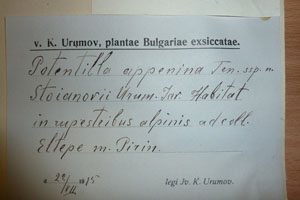 v. K. Urumov, plantae Bulgariae exsiccatae.
Potentilla appenina Ten. ssp. n.
Stoianovii Urum. Jav. Habitat
in rupestribus alpinis ad coll.
Eltepe m. Pirin.
15 legi Jv. K. Urumov.